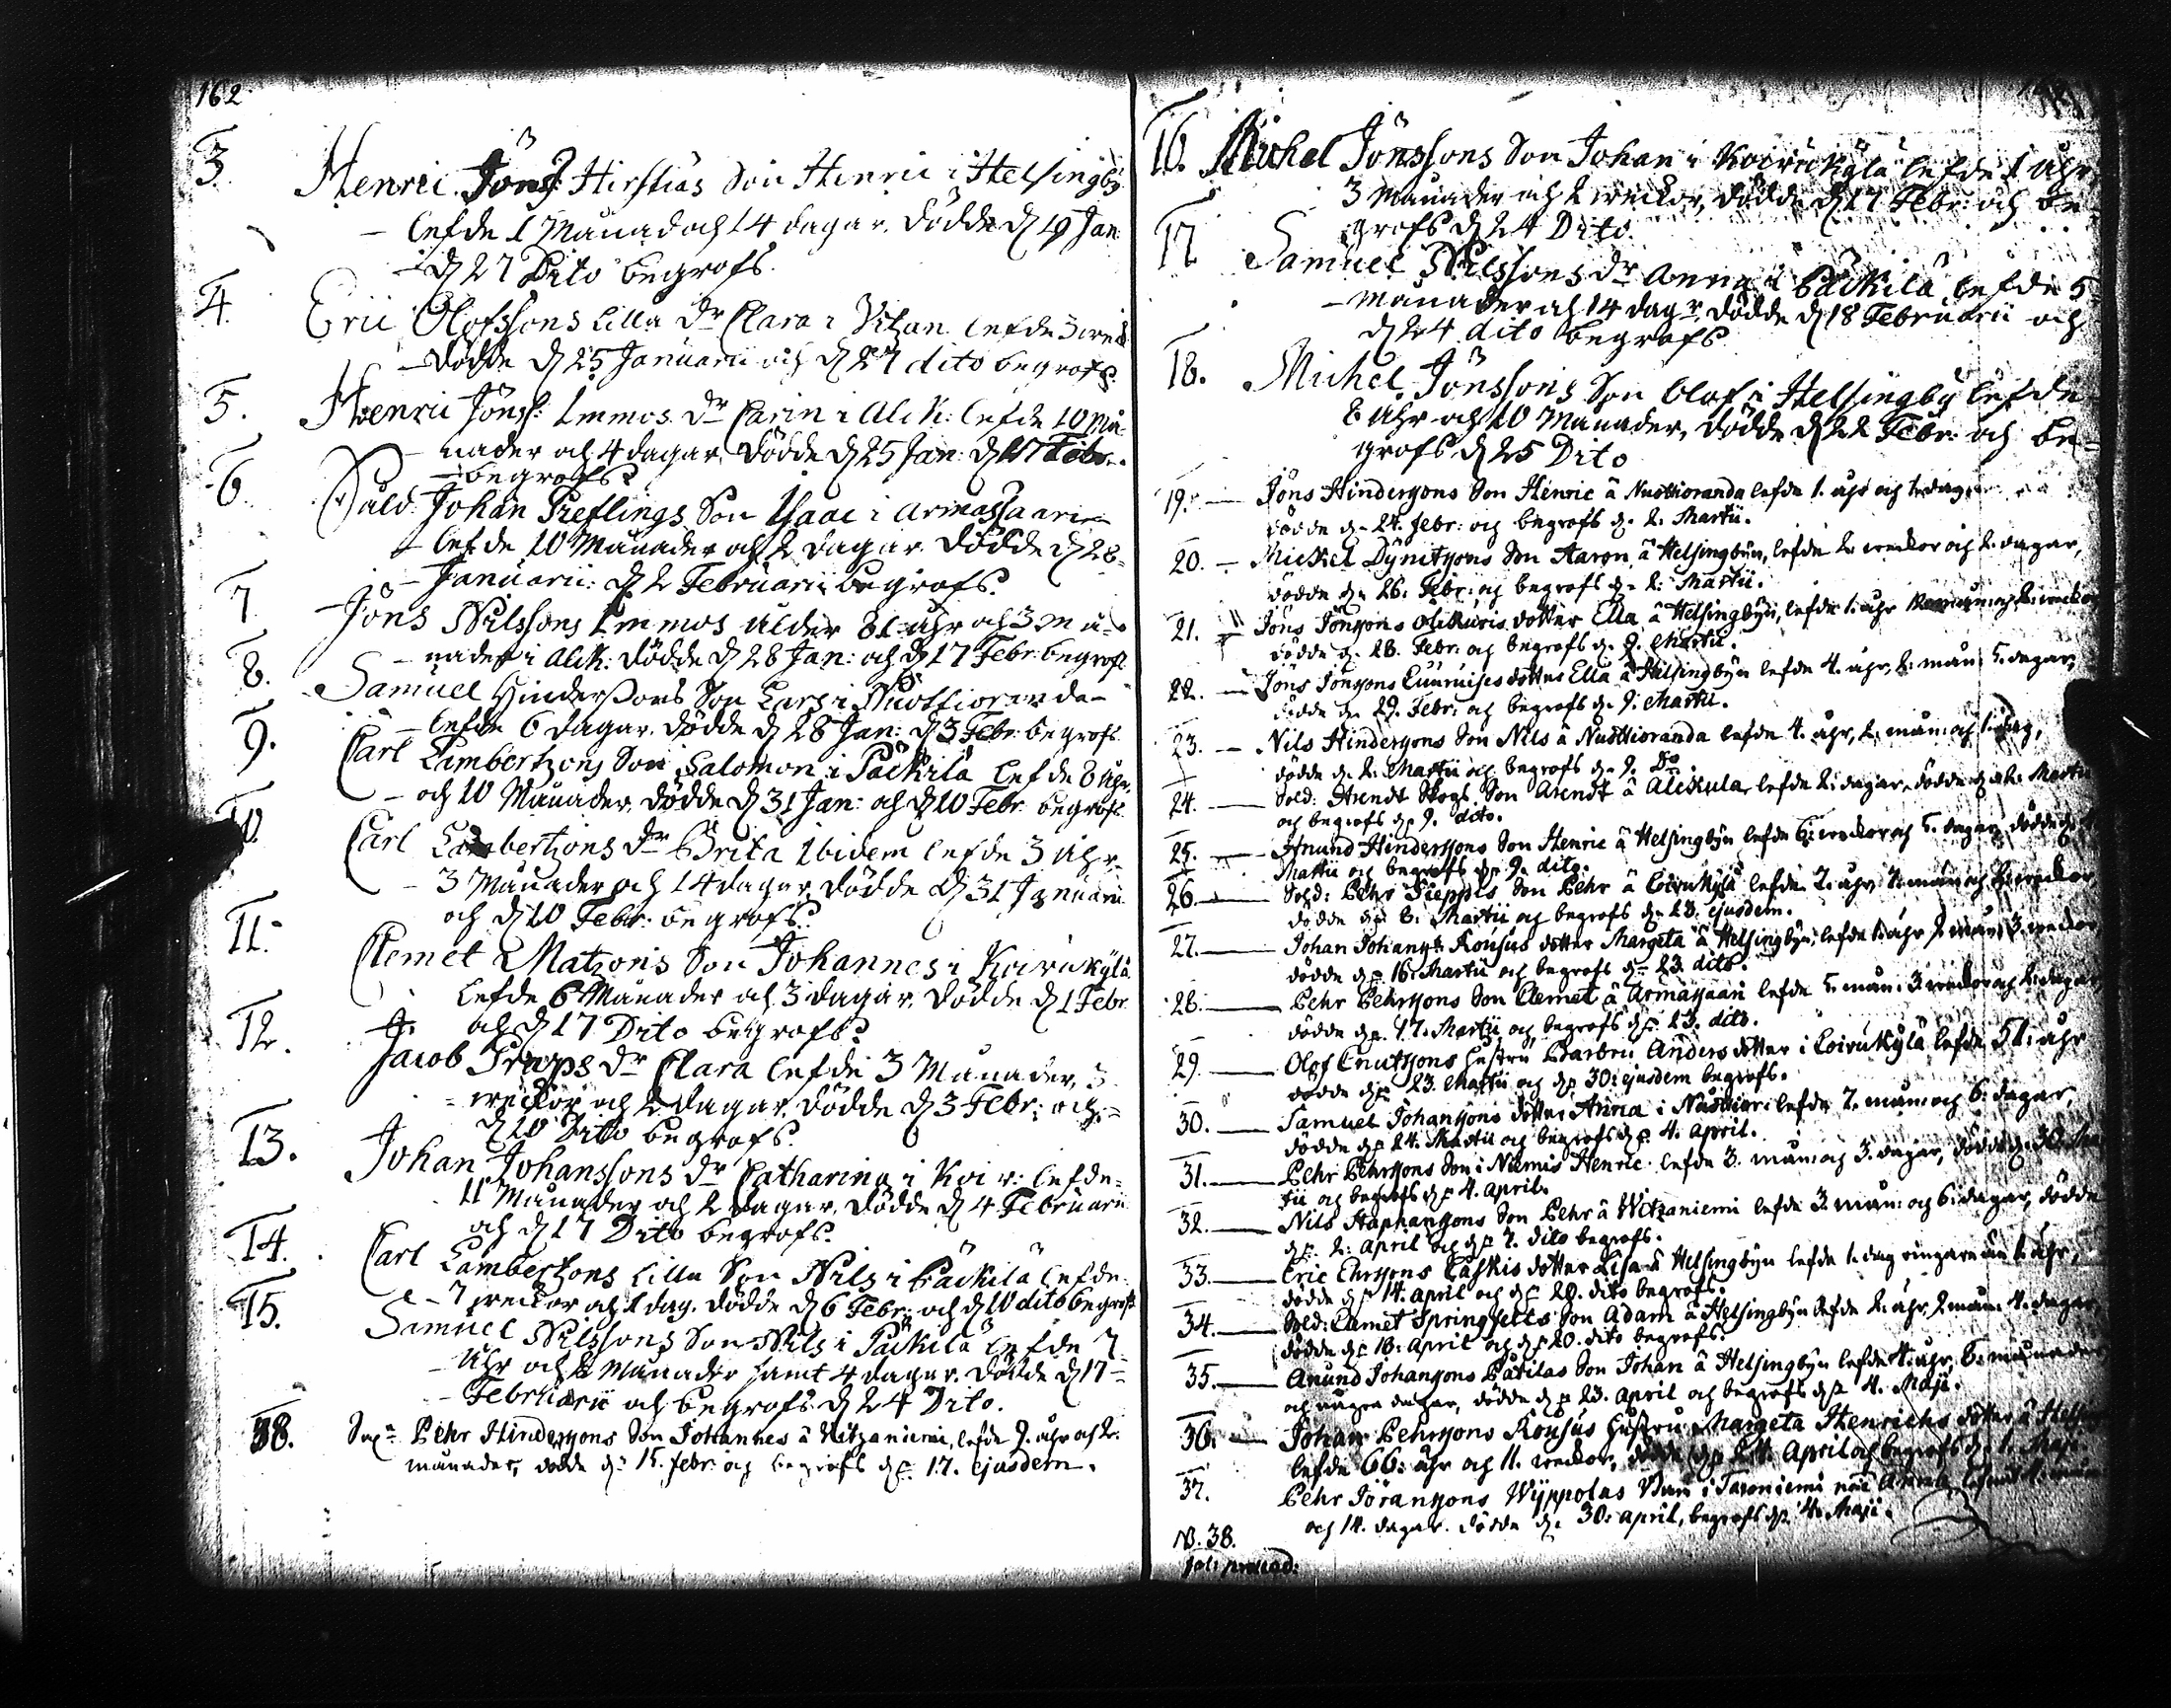 162
3. Henric Jönss: Hirstias Son Henric i Helsingby
lefde 1 Månad och 14 dagar. Dödde d 19 Jan:
d 27 Dito begrofs.
4. Eric Olofssons lilla dr Clara i Vitzan. lefde 3 weck
dödde d 25 Januarii och d 27 dito begrofs.
5. Henric Jönss: Immos dr Carin i Alck: lefde 10 Må
nader och 4 dagar, Dödde d 25 Jan: d 17 Febr.
begrofs.
6. Sald. Johan Treflings Son Isaac i Armassaari
lefde 10 Månader och 2 dagar. Dödde d 28
Januarii: d 2 Februarii begrofs.
7. Jöns Nilssons Immos ålder 81 åhr och 3 må
nader i Alck: dödde d 28 Jan: och d 17 Febr: begrofs
8. Samuel Hinderssons Son Lars i Nuottioranda
lefde 6 dagar. Dödde d 28 Jan: d 3 Febr: begrofs
9. Carl Lambertzons Son Salomon i Päckilä lefde 8 åhr
och 10 Månader, Dödde d 31 Jan: och d 10 Febr. begrofs
10. Carl Lambertzons dr Brita Ibidem lefde 3 åhr
3 Månader och 14 dagar, Dödde d 31 Januarii
och d 10 Febr: begrofs.
11. Clemet Matzons Son Johannes i Koivukylä
lefde 6 Månader och 3 dagar, dödde d 1 Febr
och d 17 Dito begrofs.
12. Jacob Trapps dr Clara lefde 3 Månader, 3
weckor och 2 dagar, Dödde d 3 Febr: och
d 10 Ditto begrofs.
13. Johan Johanssons dr Catharina i Koiv: lefde
11 Månader och 2 dagar, Dödde d 4 Februarii
och d 17 Dito begrofs.
14. Carl Lambertzons lilla Son Nils i Päckilä lefde
7 weckor och 1 dag. Dödde d 6 Febr: och d 10 dito begrofs
15. Samuel Nilssons Son Nils i Päckilä lefde 7
åhr och 2 Månader samt 4 dagar. Dödde d 17
Februarii och begrofs d 24 Dito.
38. Pehr Hinderssons Son Johannes å Witzaniemi, lefde 9. åhr och 2.
månader, dödde d: 15. febr: och begrofs d: 17. ejusdem.
16. Michel Jönssons Son Johan i Koivukylä lefde 1 åhr
3 Månader och 2 weckor, dödde d 17 Febr: och be
grofs d 24 Dito
17. Samuel Nilssons dr Anna i Päckilä lefde 5
månader och 14 dagr. Dödde d 18 Februarii och
d 24 dito begrofs
18. Michel Jönssons Son Olof i Helsingby lefde
8 åhr och 10 Månader, Dödde d 22 Febr: och be=
grofs d 25 Dito
19. Jöns Hinderssons Son Henric å Nuottioranda lefde 1. åhr och
dödde d. 24. febr: och begrofs d. 2. Martii.
20. Mickel Dynitssons Son Aaron å Helsingbyn, lefde 2. weckor och 2. dagar,
dödde d. 26. Febr: och begrofs d. 2. Martii.
21. Jöns Jönssons Olkkuris dotter Ella å Helsingbyn, lefde 1. åhr
dödde d. 28. Febr: och begrofs d. 9. Martii.
22. Jöns Jönssons dotter Ella å Helsingbyn lefde 4. åhr, 8. mån: 5. dagar,
dödde d. 29. Febr: och begrofs d. 9. Martii.
23. Nils Hinderssons Son Nils å Nuottioranda lefde 4. åhr, 2. mån: och 1. dag,
dödde d. 2. Martii och begrofs d. 9. Do
24. Sold: Arendt Skogs Son Arendt å Alckula lefde 2. dagar, dödde d. 2. Martii
och begrofs d. 9. dito.
25. Anund Hinderssons Son Henric å Helsingbyn lefde 6. weckor och 5. dagar, dödde
Martii och begrofs d. 9. dito.
26. Sold: Pehr Pieppos Son Pehr å Coivukylä lefde 2. åhr
dödde d. 8. Martii och begrofs d. 23. ejusdem.
27. Johan Johanss: Rousus dotter Margeta å Helsingbyn, lefde 1. åhr
dödde d. 16. Martii och begrofs d. 23. dito.
28. Pehr Pehrssons Son Clemet å Armassaari lefde 5. mån: 3. weckor och 2. dagar
dödde d. 17. Martii och begrofs d. 23. dito.
29. Olof Cnutssons hustru Barbru Anders dotter i Coivukylä lefde 51. åhr
dödde d. 23. Martii och d. 30. ejusdem begrofs.
30. Samuel Johanssons dotter Anna i Nuottior: lefde 7. mån: och 6. dagar,
dödde d. 24. Martii och begrofs d. 4. April.
31. Pehr Pehrssons Son i Niemis Henric lefde 3. mån: och 3. dagar, dödde d. 30. Mar
tii och begrofs d. 4. April.
32. Nils Staphanssons Son Pehr å Witzaniemi lefde 3. mån: och 6. dagar, dödde
d. 2. April och d. 7. dito begrofs.
33. Eric Ehrssons Caskis dotter Lisa å Helsingbyn lefde 1. dag ringare än 1. åhr,
dödde d. 14. April och d. 20. dito begrofs.
34. Sold: Camet Springfelts Son Adam å Helsingbyn lefde 2. åhr, 2. mån: 4. dagar
dödde d. 16. April och d. 20. dito begrofs.
35. Anund Johanssons Patilas Son Johan å Helsingbyn lefde 4. åhr, 6. månader
och några dagar, dödde d. 23. April och begrofs d. 4. Maji.
36. Johan Pehrssons Rousus hustru Margeta Henrichs dotter å Helsin
lefde 66. åhr och 11. weckor, dödde d. 24. April och begrofs d. 1. Maji
37. Pehr Jöranssons Wyppolas Barn i Taroniemi Anna
och 14. dagar. dödde d. 30. April, begrofs d. 4. Maji.
N. 38.
fol: præced: